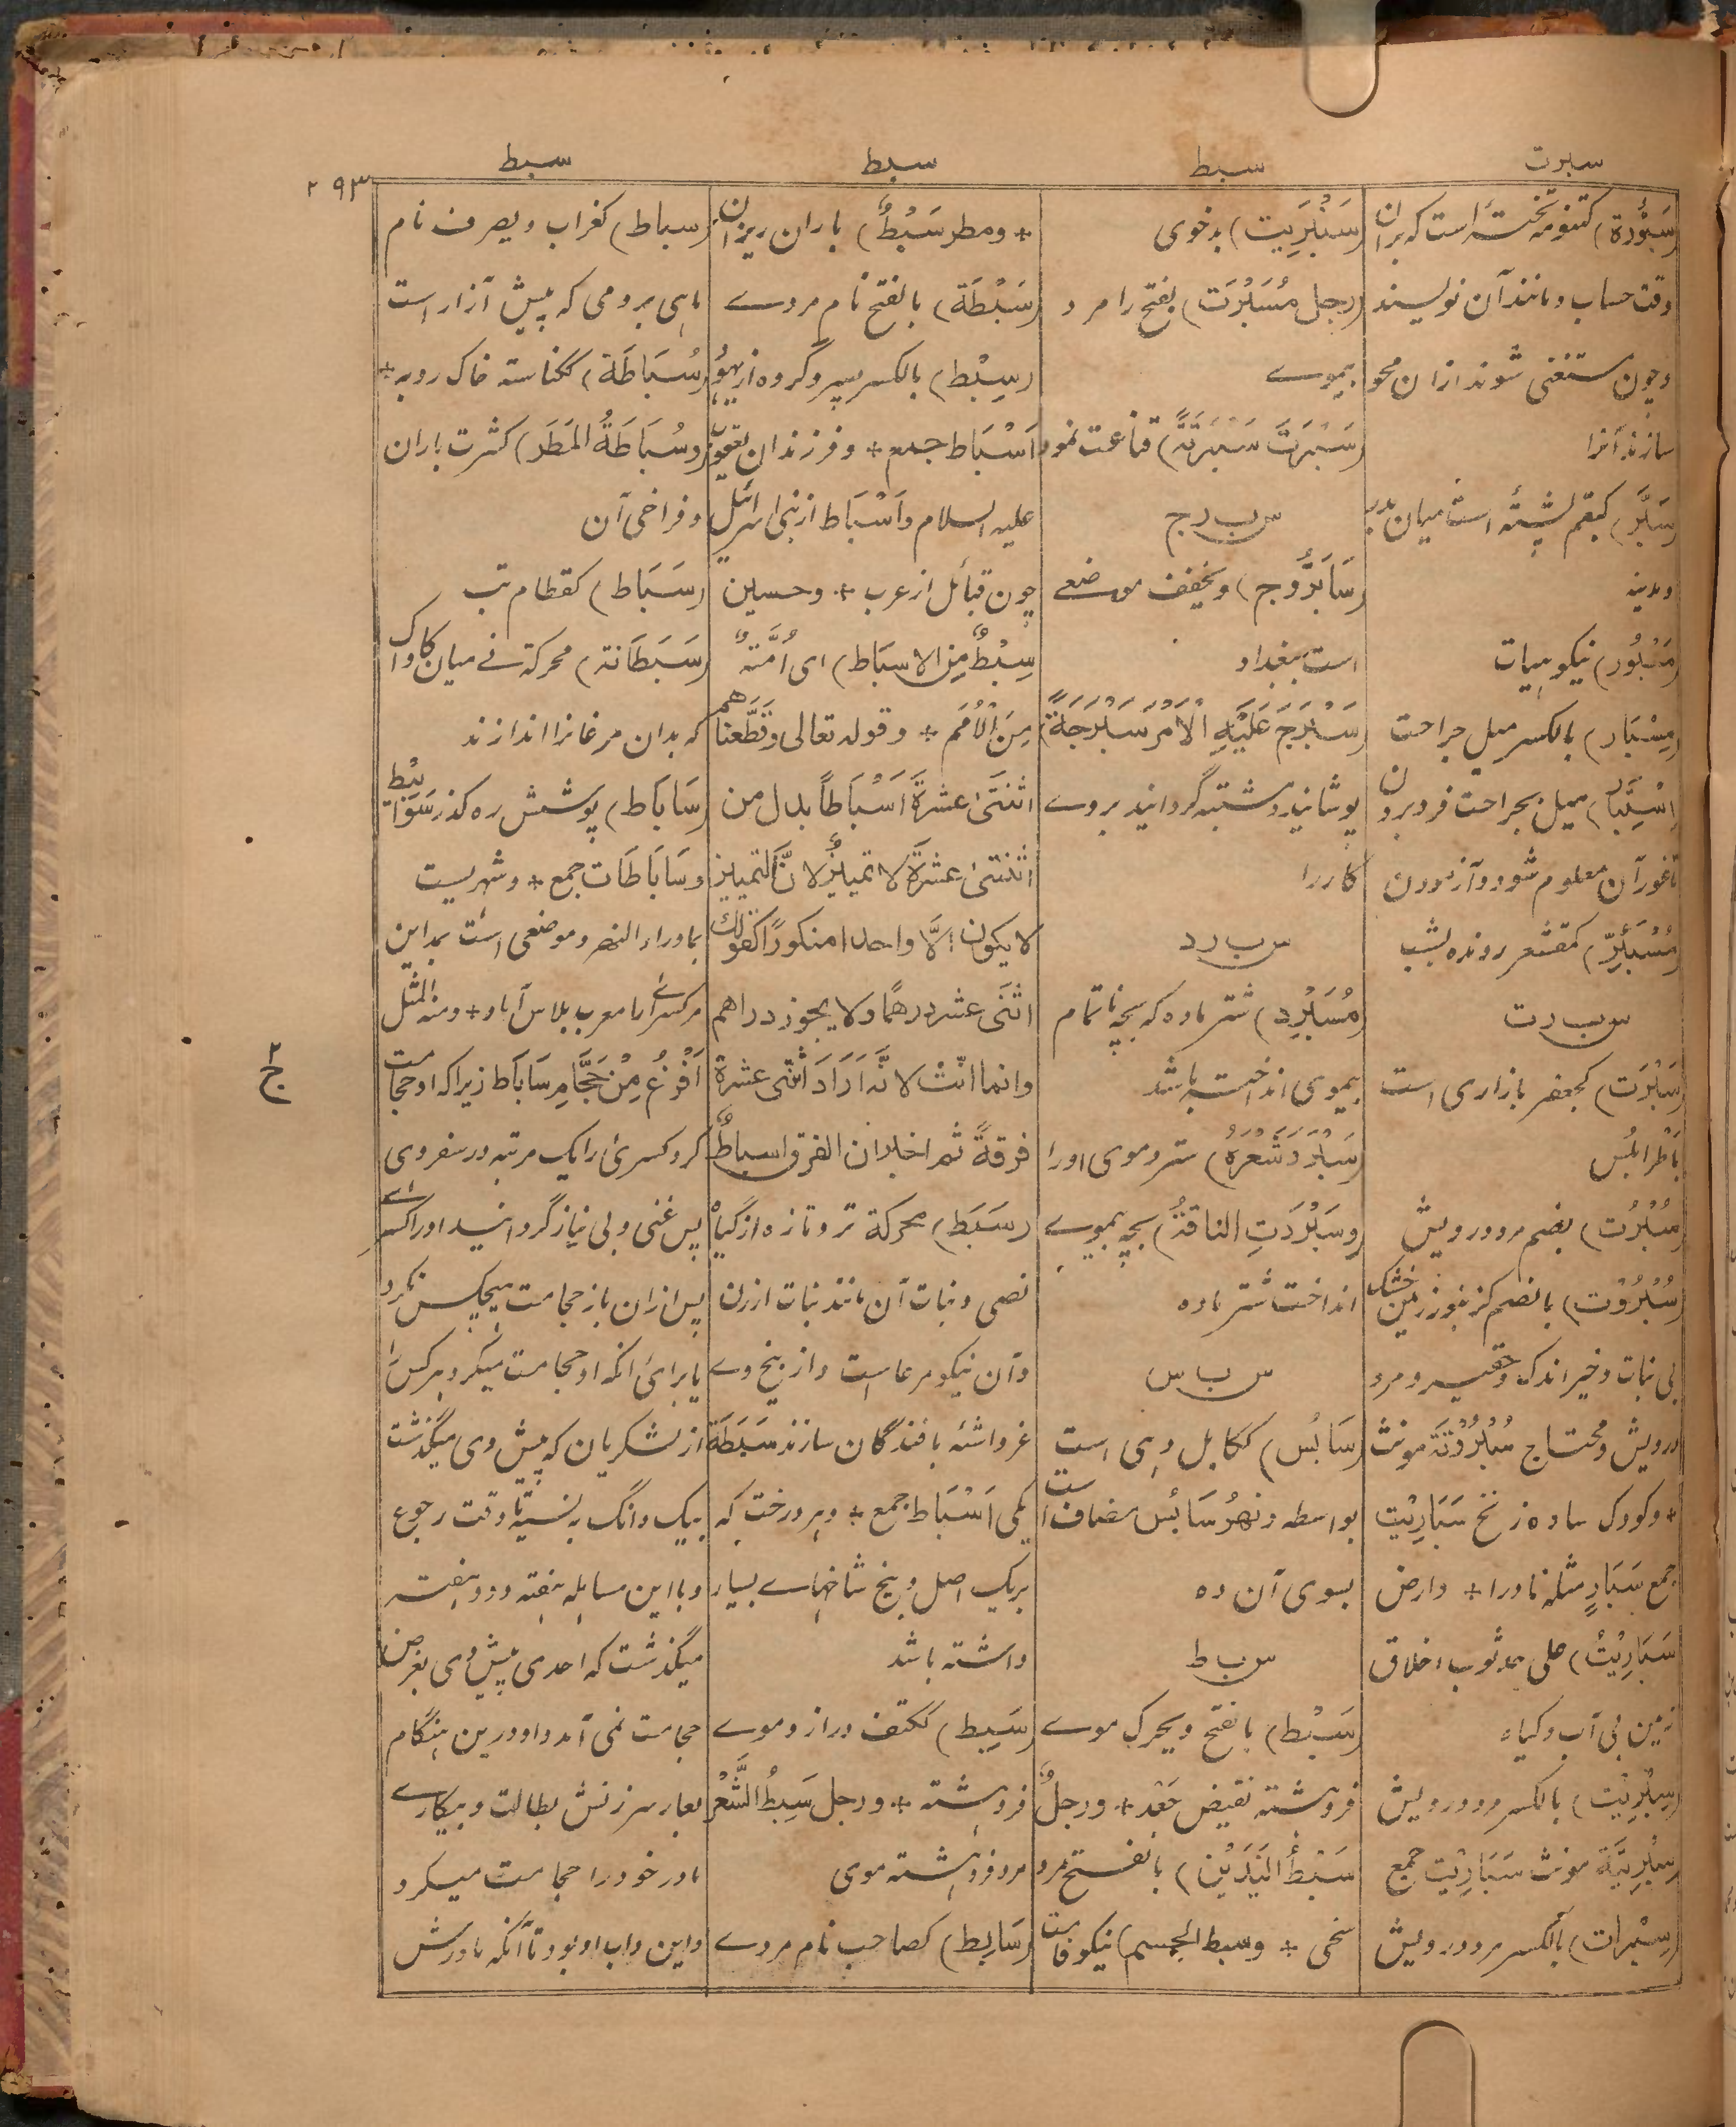 سبرت
سبط
سبط
سبط
۲۹۳
(سَبُّورَة) کتنومة تخته است که بران
وقت حساب و مانند آن نویسند
و چون مستغنی شوند ازان محو
سازند آنرا
(سَبَّر) کبقم پشته است میان بدر
و مدینه
(مَسْبُور) نیکو هیات
(مِسْبَار) بالکسر میل جراحت
(اِسْتِبَار) میل بجراحت فرو بردن
تا غور آن معلوم شود و آزمودن
(مُسْبَئِرّ) کمقشعر رونده بشب
س ب ر ت
(سَبْرَت) کجعفر بازاری است
باَطْرابُلُس
(سُبْرُت) بضم مرد درویش
(سُبْرُوْت) بالضم کزنبور زمین خشک
بی نبات و خیر اندک و حقیر و مرد
درویش و محتاج سُبْرُوْتَة مونث
* و کودک ساده زنخ سَبَارِیْت
جمع سَبَارٍ مثله نادرا * و ارض
سَبَارِیْتُ) علی حد ثوب اخلاق
زمین بی آب و گیاه
(سِبْرِیْت) بالکسر مرد درویش
سِبْرِیْتَة مونث سَبَارِیْت جمع
(سِبْرات) بالکسر مرد درویش
(سَنْبَرِیت) بدخوی
(رجل مُسَبْرَت) بفتح را مرد
بیموے
(سَبْرَتَ سَبْرَتَةً) قناعت نمود
س ب ر ج
(سَابَرُّوج) و یخفف موضعے
است ببغداد
(سَبْرَجَ عَلَیْهِ الْاَمْرَ سَبْرَجَةً)
پوشانید و مشتبه گردانید بروے
کار را
س ب ر د
(مُسَبْرِد) شتر ماده که بچه ناتمام
بیموی انداخته باشد
(سَبْرَدَ شَعْرَهُ) سترد موی او را
(وسَبْرَدَتِ الناقةُ) بچه بیموے
انداخت شتر ماده
س ب س
(سَابُس) ککابل دهی است
بواسطه و نهرُ سَابُس مضاف است
بسوی آن ده
س ب ط
(سَبْط) بالفتح و یحرک موے
فروهشته نقیض جَعْد * و رجلٌ
سَبْطُ الیَدَیْن) بالفتح مرد
سخی * و سبط الجسم) نیکو قامت
* و مطر سَبْطٌ) باران ریزان
(سَبْطَة) بالفتح نام مردے
(سِبْط) بالکسر پسر و گروه از یهود
اَسْبَاط جمع * و فرزندان یعقوب
علیه السلام و اَسْبَاط از بنی اسرائیل
چون قبائل از عرب * و حسین
سِبْطٌ مِنَ الاسبَاط) ای اُمَّةٌ
مِنَ الْاُمَم * و قوله تعالی وَقَطَّعْنَاهُم
اثْنَتَیْ عَشرةَ اَسْبَاطاً بدل من
اثنتیْ عشرةَ لا تمییزٌ لانّ التمییز
لا یکون اِلَّا واحدا منکورًا کقولك
اثنَی عشر درهمًا ولا یجوز دراهم
وانما انّث لانَّه اَرَادَ اثنتی عشرة
فرقةً ثم اخبر ان الفرق اسباطٌ
(سَبَط) محرکة تر و تازه از گیاه
نصی و نبات آن مانند نبات ارزن
و آن نیکو مرعا است و از بیخ وے
غرواشه بافندگان سازند سَبَطَة
یکی اَسْبَاط جمع * و هر درخت که
بریک اصل و بیخ شاخهاے بسیار
داشته باشد
(سَبِط) ککتف دراز و موے
فروهشته * و رجل سَبِطُ الشَّعْر
مرد فروهشته موی
(سَابِط) کصاحب نام مردے
(سباط) کغراب و یصرف نام
ماهی برومی که پیش آزار است
(سُبَاطَة) ککناسة خاک روبه *
وسُبَاطَةُ المَطَر) کثرت باران
و فراخی آن
(سَبَاط) کقطام تب
(سَبَطَانة) محرکة نے میان کاواک
که بدان مرغانرا اندازند
(سَابَاط) پوشش ره گذر سَوَابِیْط
و سَابَاطَات جمع * و شهریست
بماوراء النهر و موضعی است بمداین
مر کسرے را معرب بلاس آباد * و منه المثل
اَفْرَغُ مِنْ حَجَّامِ سَابَاط زیرا که او حجامت
کرد کسریٰ را یک مرتبه در سفر وی
پس غنی و بی نیاز گردانید او را کسرے
پس ازان باز حجامت هیچکس نکرد
یا برای آنکه او حجامت میکرد هر کس را
از لشکریان که پیش وی میگذشت
بیک دانگ به نسیه تا وقت رجوع
و با این مسابله هفته و دو هفته
میگذشت که احدی پیش وی بغرض
حجامت نمی آمد و او درین هنگام
بعار سرزنش بطالت و بیکارے
مادر خود را حجامت میکرد
و این داب او بود تا آنکه مادرش
ج ۲